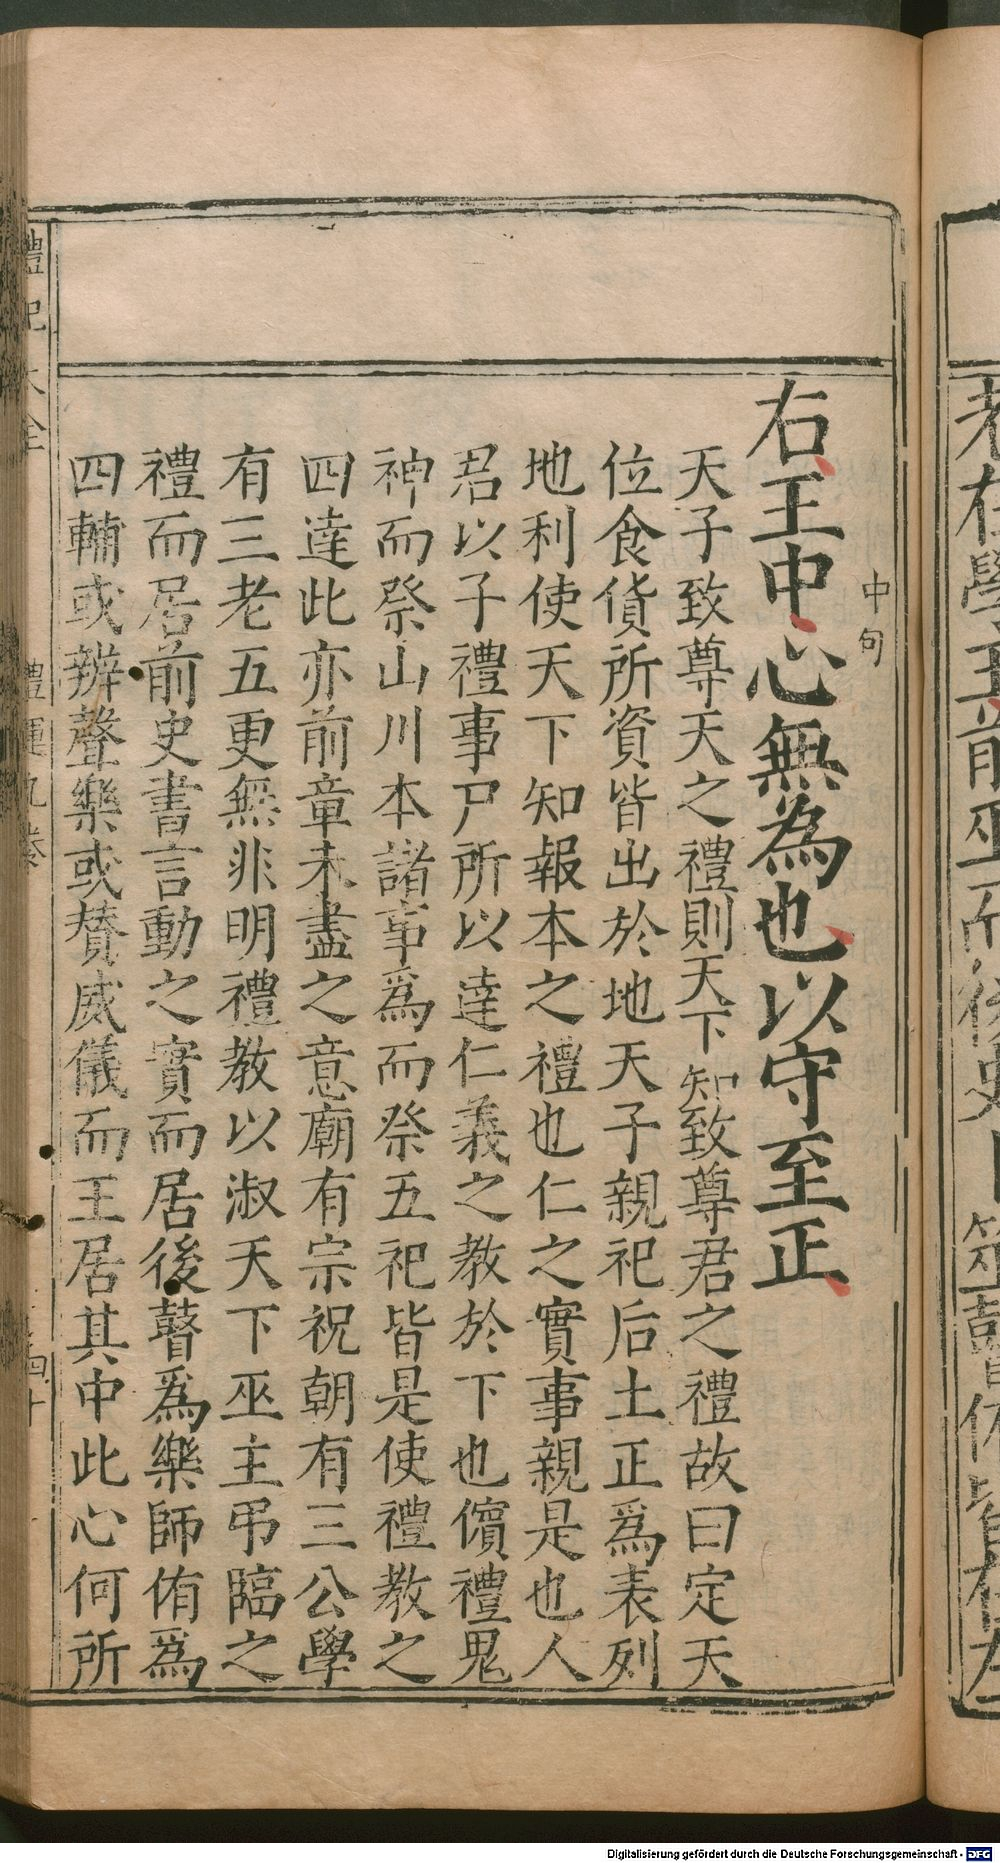 右王中心無為也以守至正
中句
天子致尊天之禮則天下知致尊君之禮故曰定天
位食貨所資皆出於地天子親祀后土正爲表列
地利使天下知報本之禮也仁之實事親是也人
君以子禮事尸所以達仁義之教於下也儐禮鬼
神而祭山川本諸事爲而祭五祀皆是使禮教之
四達此亦前章未盡之意廟有宗祝朝有三公學
有三老五更無非明禮教以淑天下巫主弔臨之
禮而居前史書言動之實而居後瞽爲樂師侑爲
四輔或辨聲樂或賛威儀而王居其中此心何所
禮記大全
禮運九卷
四十
Digitalisierung gefördert durch die Deutsche Forschungsgemeinschaft - DFG